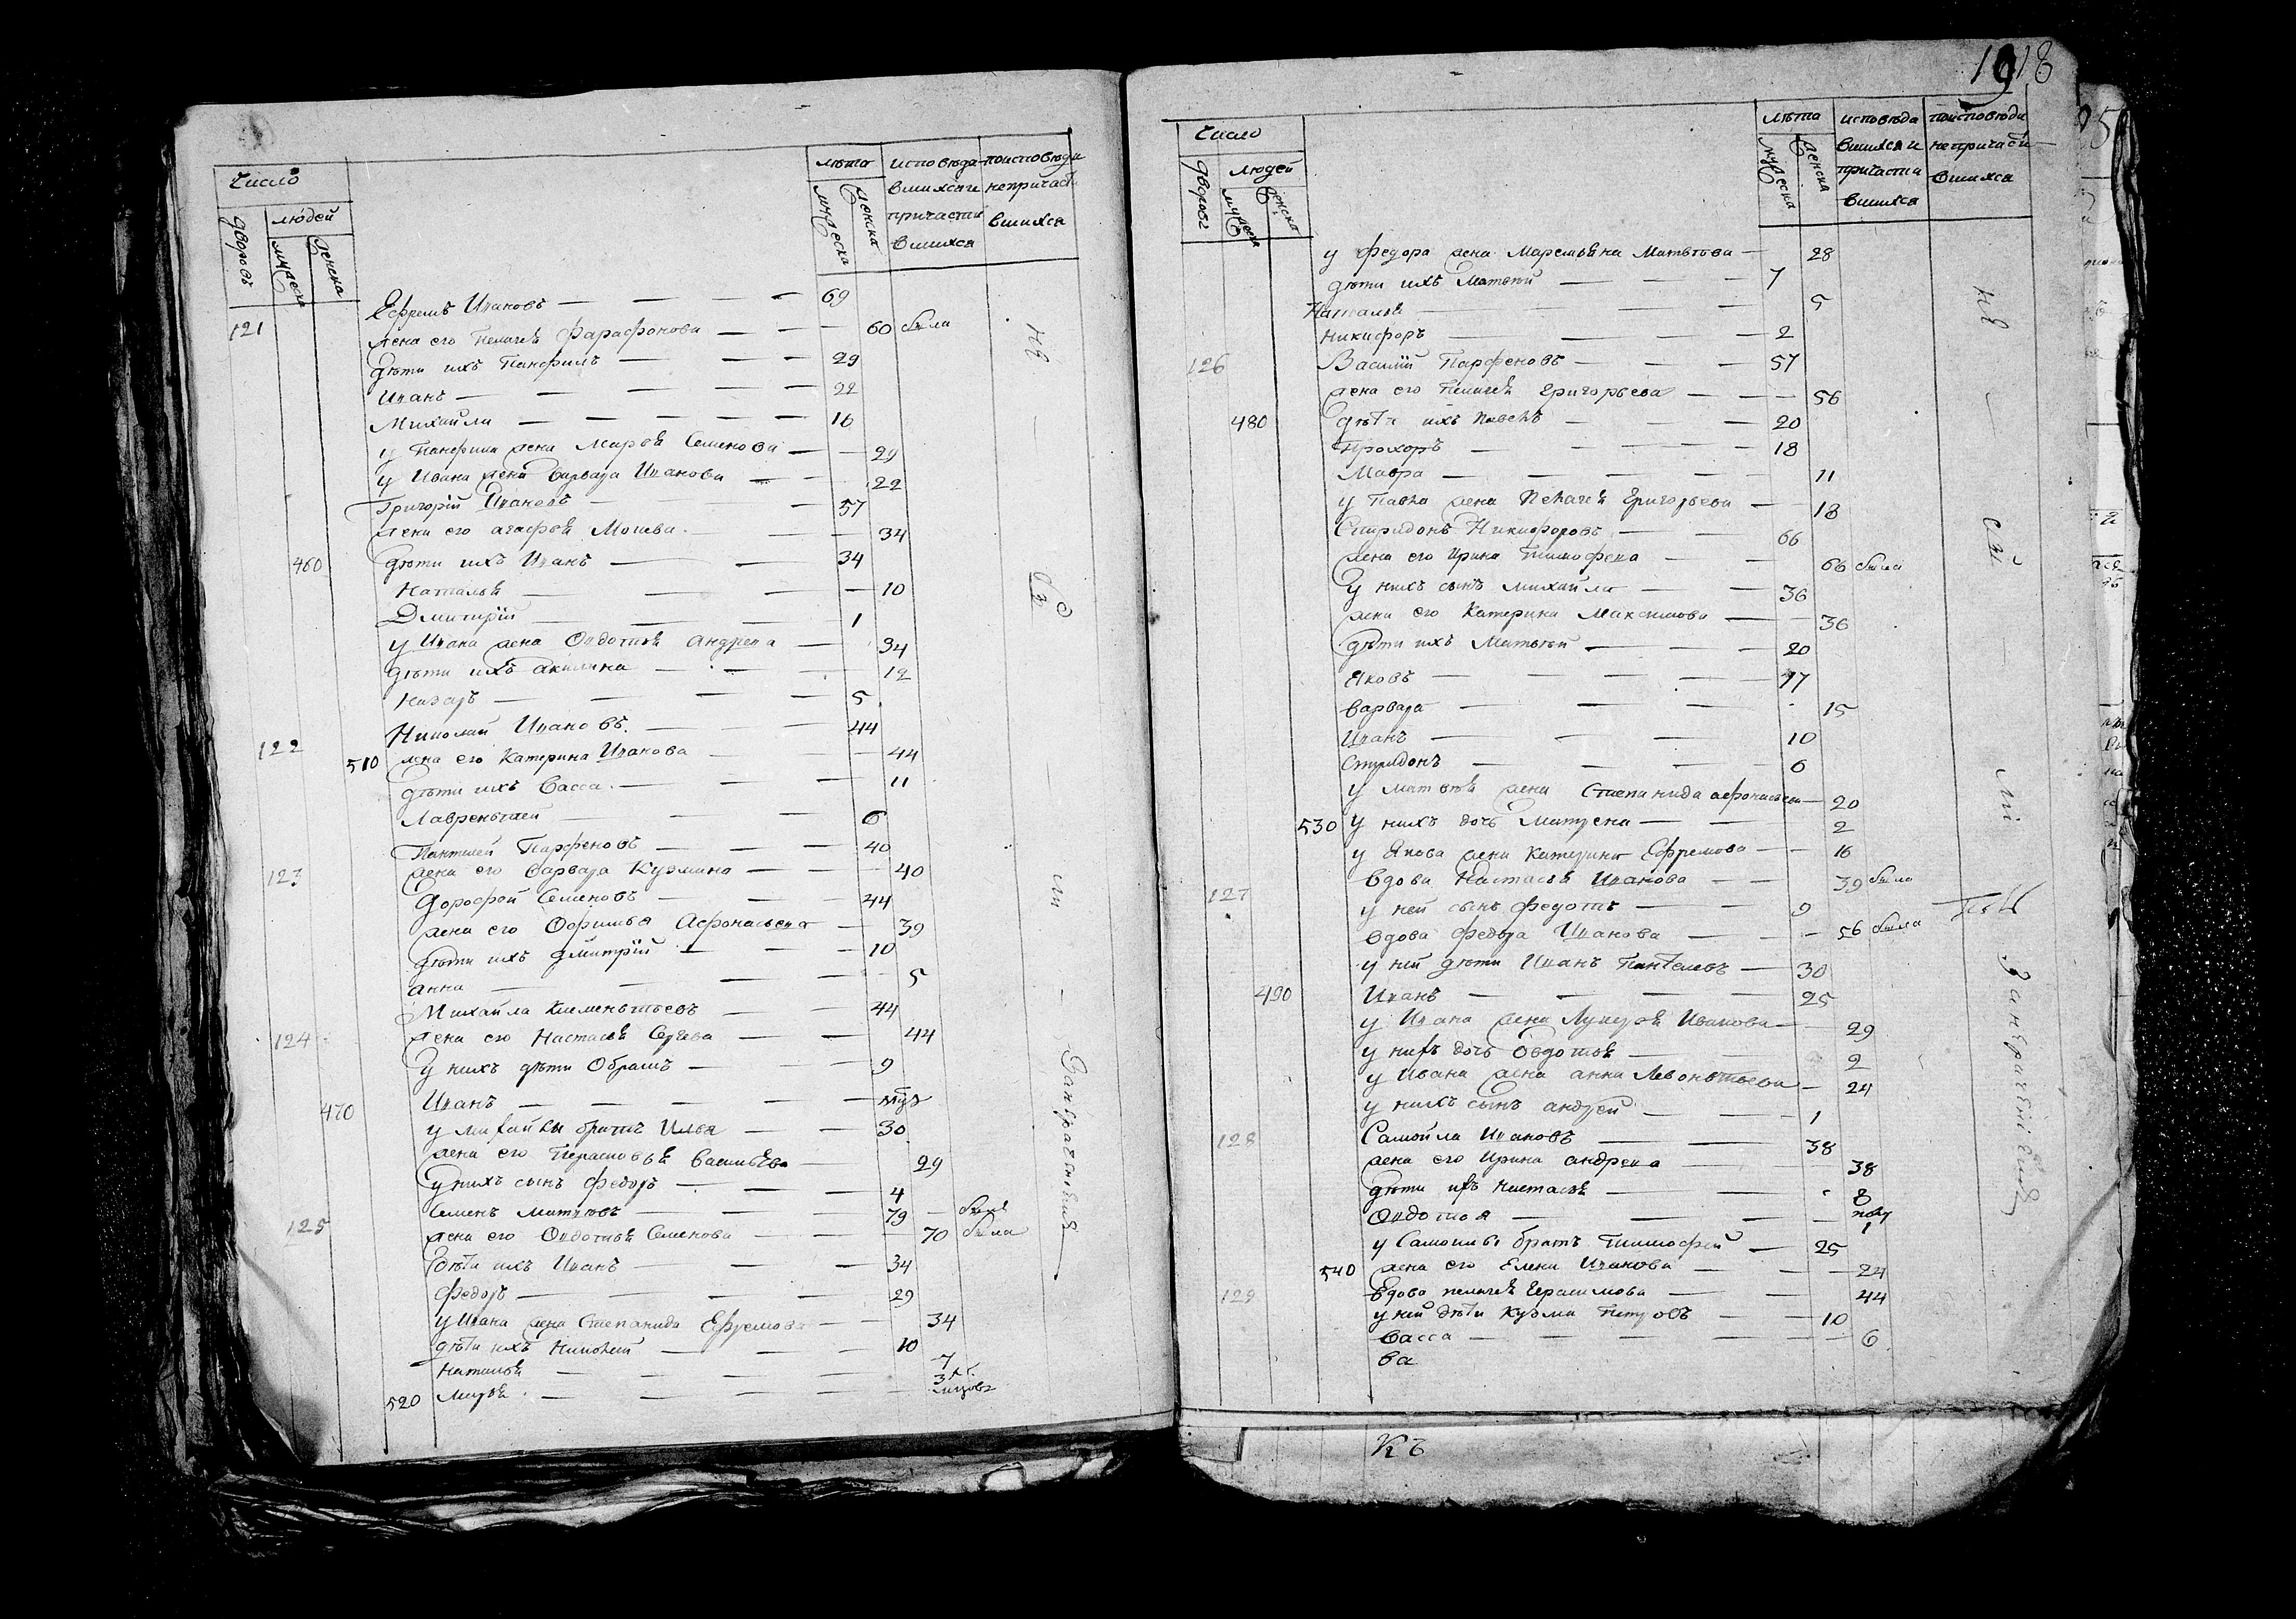 Число
дворовъ
людей
мужеска
женска
лѣта
мужеска
женска
исповѣда
вшихся и
причасти
вшихся
поисповѣди
непричасти
вшихся
121 Ефремъ Ивановъ — — — — 69
жена его Пелагея Фарафонова — — — 60 была
дѣти ихъ Панфилъ — — — 29
Иванъ — — — — 22
Михайла — — — — 16
у Панфила жена Марья Семенова — — 29
у Ивана жена Варвара Иванова — — 22
Григорій Ивановъ — — 57
жена его Агафья — 34
460 дѣти ихъ Иванъ — — 34
Наталья — — — 10
Дмитрій — — — 1
у Ивана жена Овдотья Андрева — 34
дѣти ихъ акилина — — 12
Назаръ — — — 5
122 Николай Ивановъ — — 44
510 жена его Катерина Иванова — — 44
дѣти ихъ Васса — — — 11
Лаврентей — — — 6
123 Пантелей Парфеновъ — — — 40
жена его Варвара Кузмина — — — 40
Дорофей Семеновъ — — — 44
жена его Офимья Афонасьева — 39
дѣти ихъ Дмитрій — — 10
анна — — — — 5
124 Михайла Клементьевъ — — 44
жена его Настасья — — 44
у нихъ дѣти Обрамъ — — 9
470 Иванъ — — — —
у михайлы братъ Илья — — 30
жена его Парасковья Васильева — 29
у нихъ сынъ Федоръ — — — 4
125 Семенъ — — — 79 — былъ
жена его Овдотья Семенова — — — 70 была
дѣти ихъ Иванъ — — — 34
Федоръ — — — — 29
у Ивана жена Степанида Ефремова — — 34
дѣти ихъ Николай — — — 10
Наталья — — — — 7
520 Марья — — — — 3
1918
Число
дворовъ
людей
мужеска
женска
лѣта
мужеска
женска
исповѣда
вшихся и
причасти
вшихся
поисповѣди
непричасти
вшихся
у Федора жена Маремьяна Матвѣева — 28
дѣти ихъ Матвѣй — — — 7
Наталья — — — 5
Никифоръ — — — 2
126 Василій Парфеновъ — — — 57
жена его Пелагея Григорьева — — — 56
480 дѣти ихъ Павелъ — — 20
Прохоръ — — — — 18
Мавра — — — — 11
у Павла жена Пелагея Григорьева — 18
Спиридонъ Никифоровъ — — 66
жена его Ирина Тимофева — — 66 была
у нихъ сынъ михайла — — 36
жена его Катерина Максимова — — 36
дѣти ихъ Матвѣй — — — 20
Яковъ — — — — 17
Варвара — — — — 15
Иванъ — — — 10
Спиридонъ — — — — 6
у матвѣя жена Степанида афонасьева — 20
530 у нихъ дочь Матрена — — 2
у Якова жена Катерина Ефремова — — 16
127 Вдова Настасья Иванова — — 39 была
у ней сынъ Федотъ — — 9
вдова Федора Иванова — — — 56 была
у ней дѣти Иванъ Пантелевъ — 30
490 Иванъ — — — — 25
у Ивана жена Лукерья Иванова — 29
у нихъ дочь Овдотья — — 2
у Ивана жена анна Левонтьева — 24
у нихъ сынъ андрей — — 1
128 Самойла Ивановъ — — 38
жена его Ирина андрева — — 38
дѣти ихъ Настасья — — 8
Овдотья — — — — 1
у Самоилы братъ Тимофей — 25
540 жена его Елена Иванова — — — 24
129 вдова пелагея Герасимова — — 44
у ней дѣти Кузма Петровъ — — 10
Васса — — — — — 6
ва
Къ